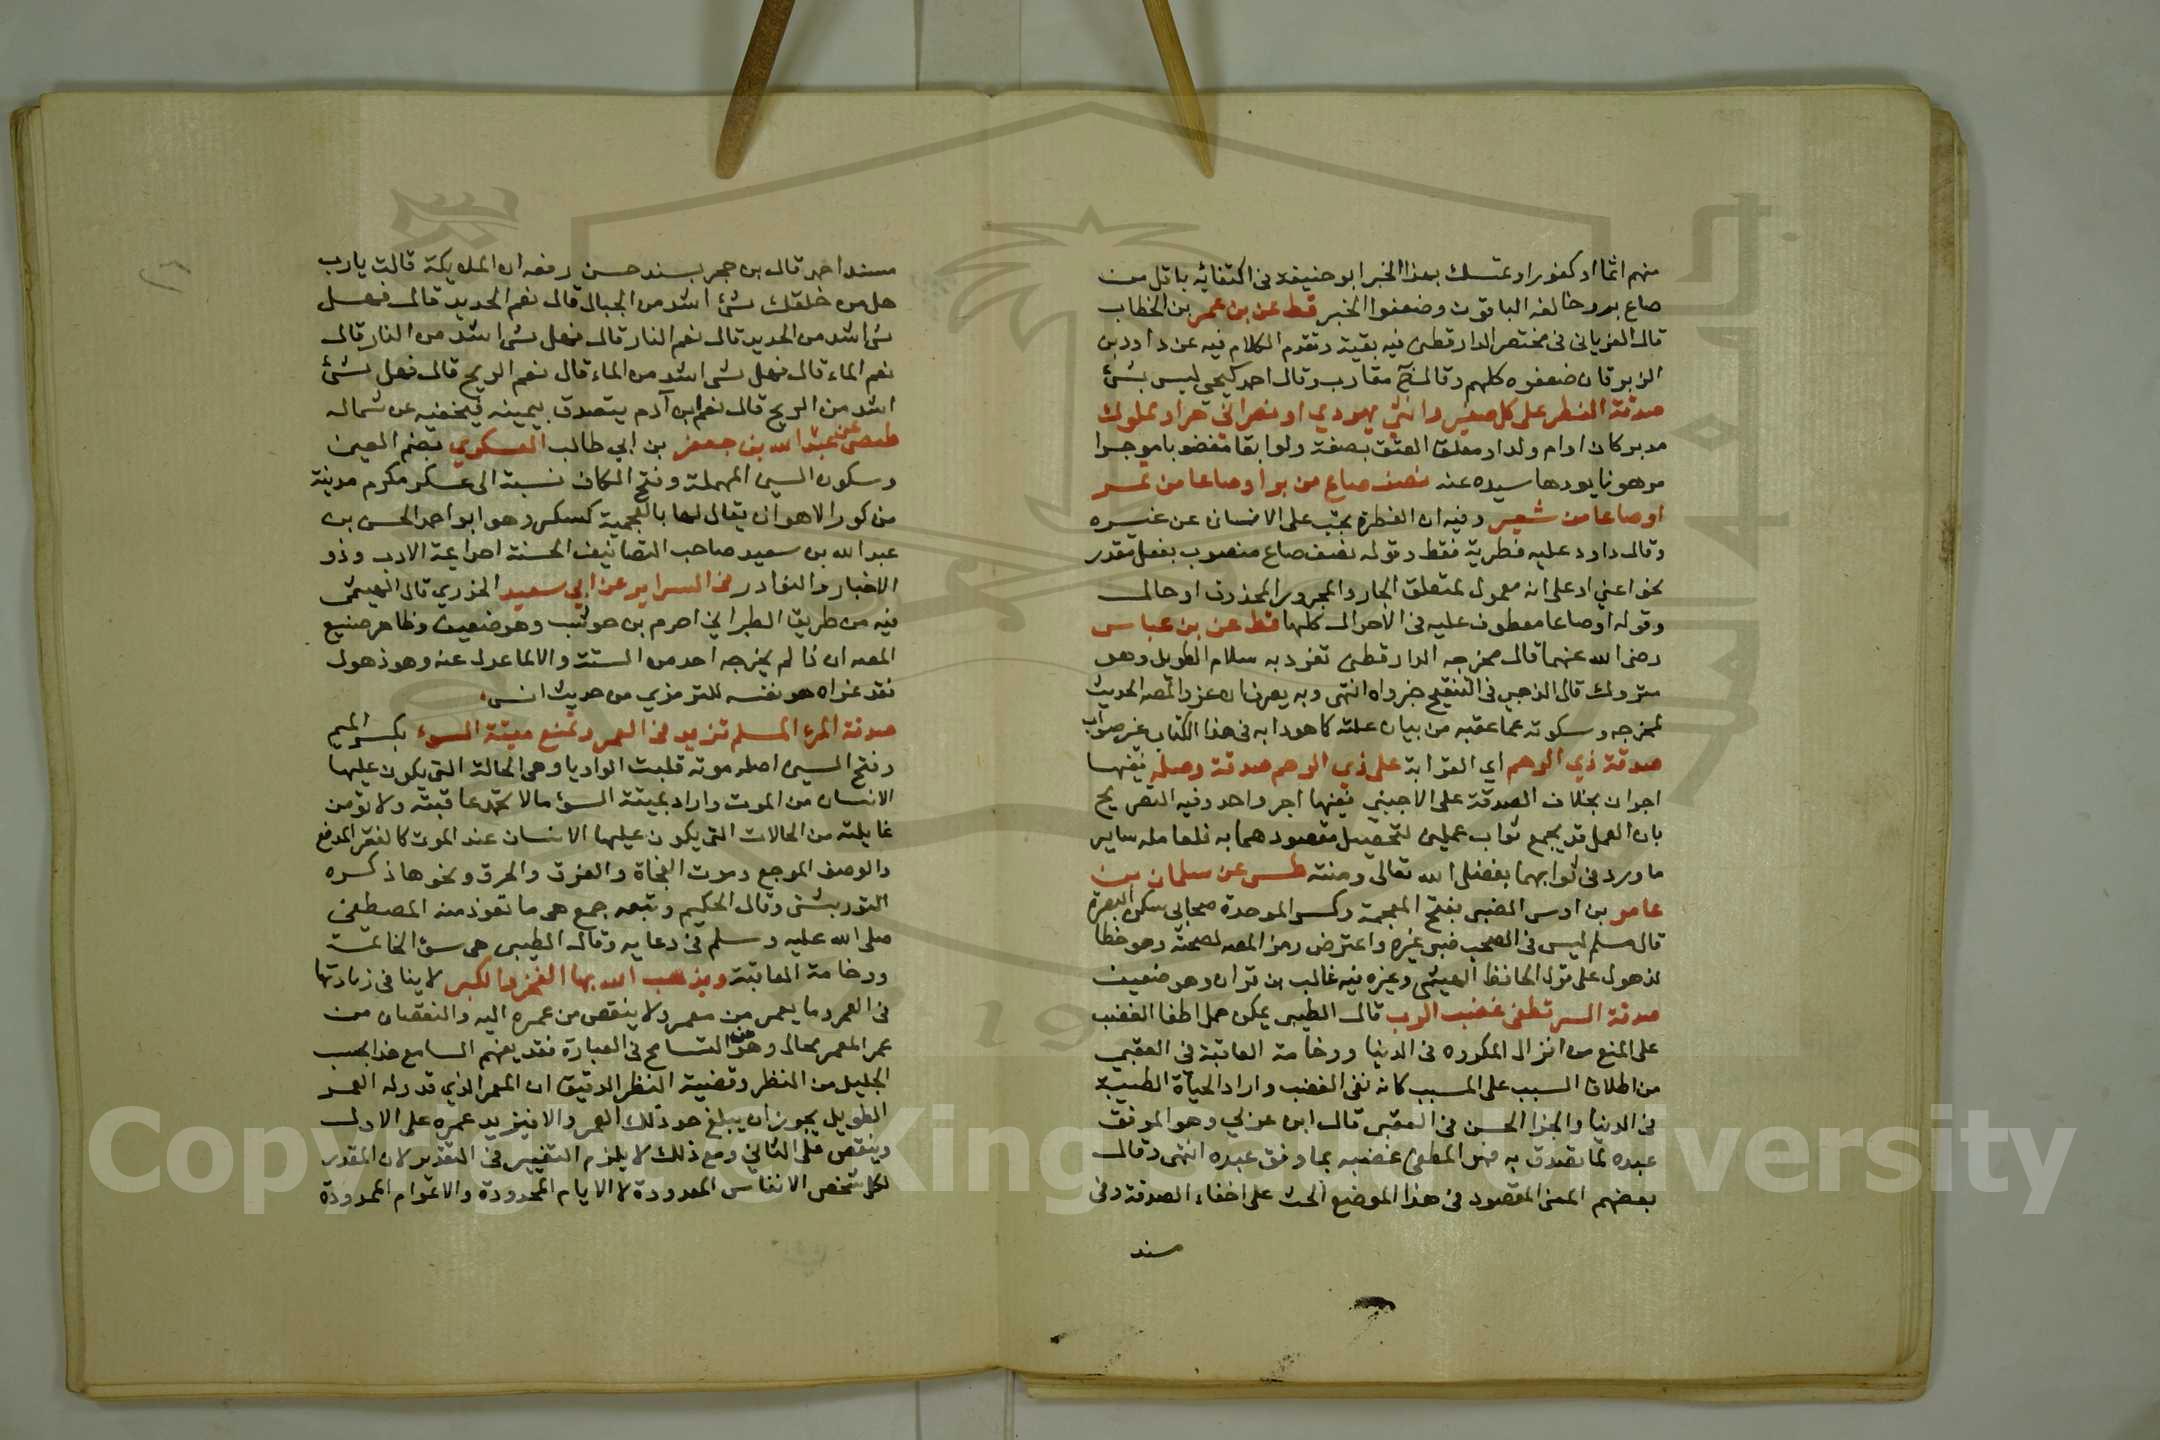 منهم اثما او كفورا وتمسك بهذا الخبر ابو حنيفة فى اكتفائه باقل من
صاع بر وخالفه الباقون وضعفوا الخبر قط عن بن عمر بن الخطاب
قال الغريانى فى مختصر الدارقطنى فيه بقية وتقدم الكلام فيه عن داود بن
الزبرقان ضعفوه كلهم وقال خ مقارب وقال احمد كيحيى ليس بشئ
صدقة الفطر على كل صغير وانثى يهودي او نصراني حر او مملوك
مدبر كان او ام ولد او معلق العتق بصفة ولو ابقا مغضوبا موجرا
مرهونا يودها سيده عنه نصف صاع من بر او صاعا من تمر
او صاعا من شعير وفيه ان الفطرة تجب على الانسان عن غيره
وقال داود عليه فطريه فقط وقوله نصف صاع منصوب بفعل مقدر
نحو اعني او على انه مفعول لمتعلق الجار والمجرور المحذوف او حال
وقوله او صاعا معطوف عليه فى الاحوال كلها قط عن بن عباس
رضى الله عنهما قال مخرجه الدارقطنى تفرد به سلام الطويل وهو
متروك قال الذهبى فى التنقيح خبر واه انتهى وبه يعرف ان عزو المصه الحديث
لمخرجه وسكوته عما عقبه من بيان علته كما هو دابه فى هذا الكتاب غير صواب
صدقة ذي الرحم اي القرابة على ذي الرحم صدقة وصلة ففيها
اجران بخلاف الصدقة على الاجنبي ففيها اجر واحد وفيه التصريح
بان العمل قد يجمع ثواب عملين لتحصيل مقصودهما به فلعامله ساير
ما ورد فى ثوابهما بفضل الله تعالى ومنته طس عن سلمان بن
عامر بن اوس الضبى بفتح المعجمة وكسر الموحدة صحابى سكن البصرة
قال مسلم ليس فى الصحب ضبى غيره واعترض رمز المصه لصحته وهو خطا
لذهوله على قول الحافظ الهيثمى وغيره فيه غالب بن قران وهو ضعيف
صدقة السر تطفئ غضب الرب قال الطيبى يمكن حمل اطفا الغضب
على المنع من انزال المكروه فى الدنيا ووخامة العاقبة فى العقبى
من اطلاق السبب على المسبب كانه نفى الغضب واراد الحياة الطيبة
فى الدنيا والجزا الحسن فى العقبى قال ابن عربي وهو الموفق
عبده لما تصدق به فهو المطفئ غضبه بما وفق عبده انتهى وقال
بعضهم المعنى المقصود فى هذا الموضع الحث على اخفاء الصدقة وفى
مسند
مسند احمد قال بن حجر بسند حسن رفعه ان الملايكة قالت يارب
هل من خلقك شئ اشد من الجبال قال نعم الحديد قال فهل
شئ اشد من الحديد قال نعم النار قال فهل شئ اشد من النار قال
نعم الماء قال فهل شئ اشد من الماء قال نعم الريح قال فهل شئ
اشد من الريح قال نعم ابن آدم يتصدق بيمينه فيخفيه عن شماله
طبص عن عبد الله بن جعفر بن ابي طالب العسكري بضم العين
وسكون السين المهملة وفتح الكاف نسبة الى عسكر مكرم مدينة
من كور الاهواز يقال لها بالعجمية كسكر وهو ابو احمد الحسن بن
عبد الله بن سعيد صاحب التصانيف الحسنة احد ايمة الادب وذو
الاخبار والنوادر فى السراير عن ابي سعيد الخدري قال الهيثمى
فيه من طريق الطبراني اصرم بن حوشب وهو ضعيف وظاهر صنيع
المصه ان ذا لم يخرجه احد من الستة والا لما عدل عنه وهو ذهول
فقد عزاه هو نفسه للترمزي من حديث انس
صدقة المرء المسلم تزيد فى العمر وتمنع ميتة السوء بكسر الميم
وفتح السين اصله موته قلبت الواو يا وهى الحالة التى يكون عليها
الانسان من الموت واراد بميتة السوٴ مالا تحمد عاقبته ولا تؤمن
غايلته من الحالات التى يكون عليها الانسان عند الموت كالفقر المدقع
والوصف الموجع وموت الفجاة والغرق والحرق ونحوها ذكره
التوربشتى وقال الحكيم وتبعه جمع هى ما تعوذ منه المصطفى
صلى الله عليه وسلم فى دعايه وقال الطيبى هى سوٴ الخاتمة
ووخامة العاقبة ويذهب الله بها الفخر والكبر لا ينافى زيادتها
فى العمر وما يعمر من معمر ولا ينقص من عمره اليه والنقصان من
عمر المعمر محال وهو من التسامح فى العبارة فقد يفهم السامع هذا بحسب
الجليل من النظر وقضية النظر الدقيق ان المعمر الذي قدر له العمر
الطويل يجوز ان يبلغ حد ذلك العمر والا فيزيد عمره على الاول
وينقص على الثاني ومع ذلك لا يلزم التغيير فى التقدير لان المقدر
لكل شخص الانفاس المعدودة لا الايام المحدودة والاعوام الممدودة
Copyright © King Saud University